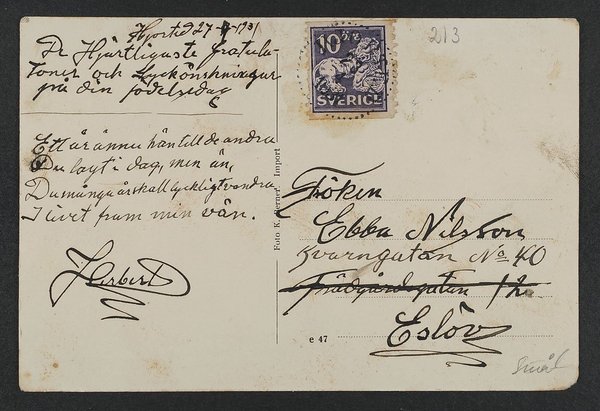 Hjorted 27-7-1931
De Hjärtligaste Gratula-
tioner och Lyckönskningar
på din födelsedag
Ett år ännu hän till de andra
Du lagt i dag, min än,
Du många år skall lyckligt vandra
I livet fram min vän.
Herbert
10 ÖRE
SVERIGE
213
Foto K. Berner. Import
Fröken
Ebba Nilsson
Kvarngatan No 40
Trädgårdsgatan 12
Eslöv
e 47
Smål